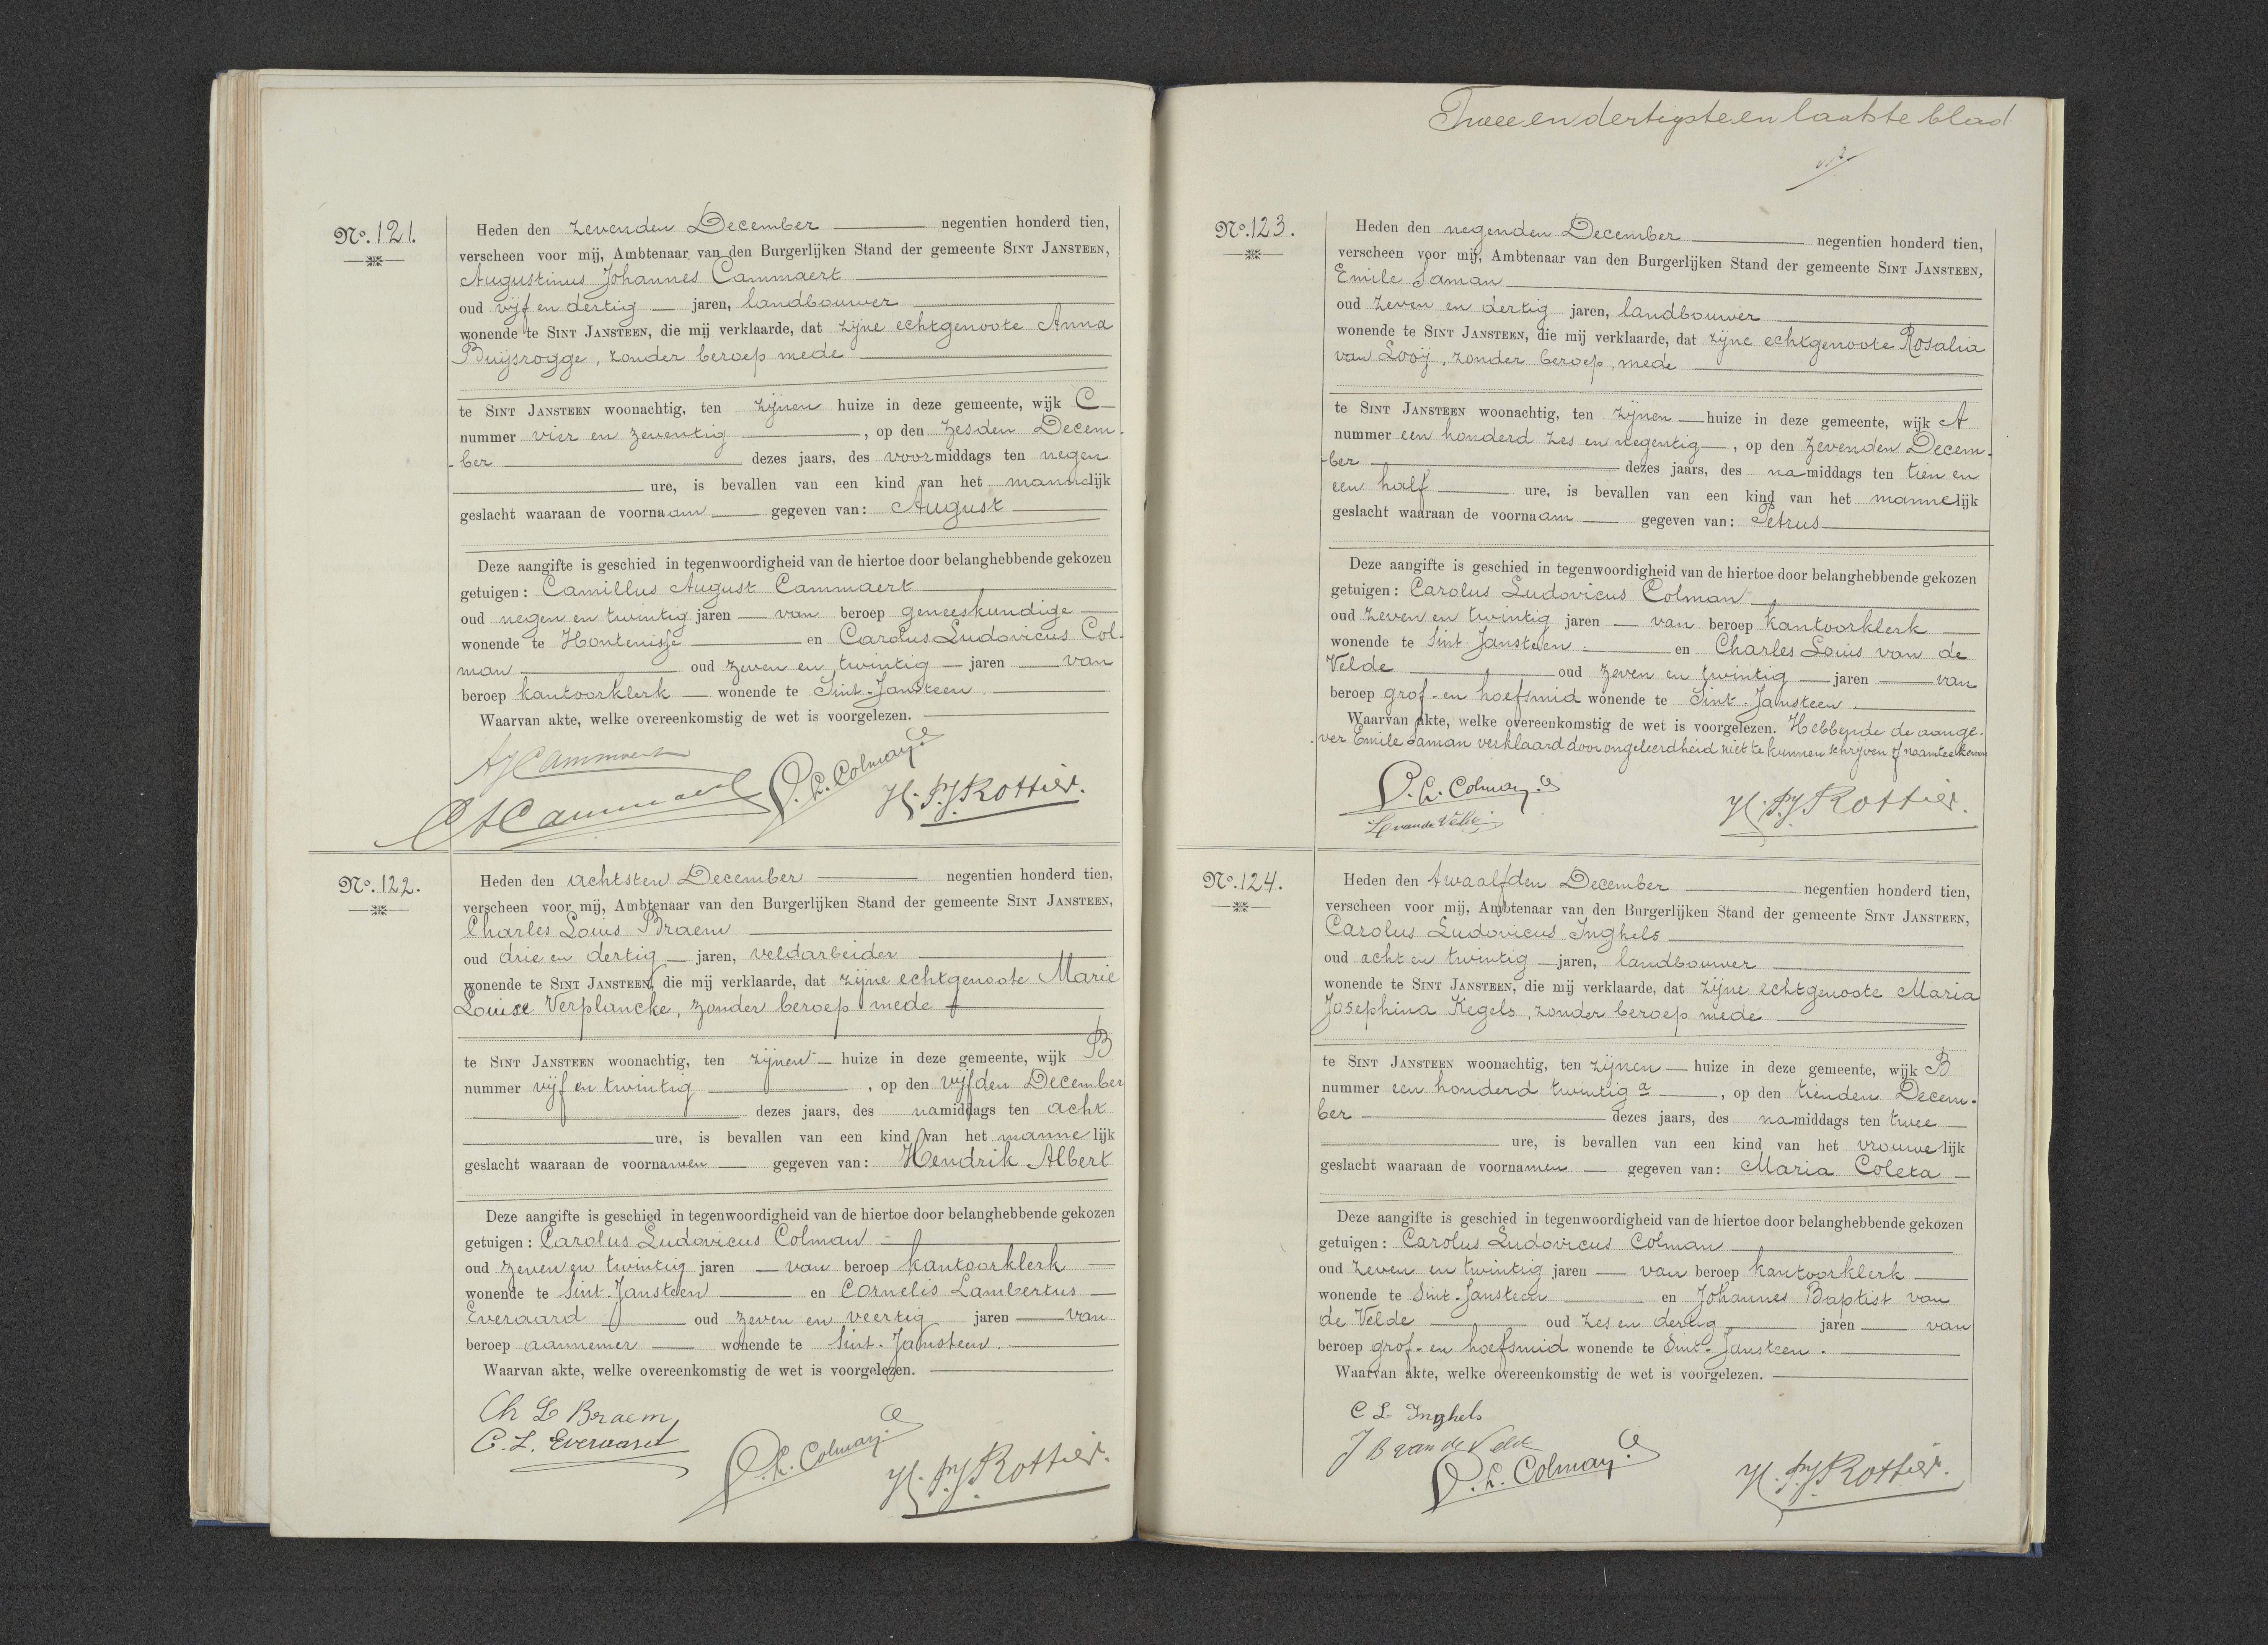 No. 121.
Heden den zevenden December negentien honderd tien,
verscheen voor mij, Ambtenaar van den Burgerlijken Stand der gemeente Sint Jansteen,
Augustinus Johannes Cammaert
oud vijf en dertig jaren, landbouwer
wonende te Sint Jansteen, die mij verklaarde, dat zijne echtgenoote Anna
Buijsrogge, zonder beroep mede
te Sint Jansteen woonachtig, ten zijnen huize in deze gemeente, wijk C
nummer vier en zeventig, op den zesden Decem-
ber dezes jaars, des voormiddags ten negen
ure, is bevallen van een kind van het mannelijk
geslacht waaraan de voornaam gegeven van: August
Deze aangifte is geschied in tegenwoordigheid van de hiertoe door belanghebbende gekozen
getuigen: Camillus August Cammaert
oud negen en twintig jaren van beroep geneeskundige
wonende te Hontenisse en Carolus Ludovicus Col-
man oud zeven en twintig jaren van
beroep kantoorklerk wonende te Sint-Jansteen.
Waarvan akte, welke overeenkomstig de wet is voorgelezen.
AJCammaert
CACammaert
C. L. Colman.
H. P. J. Rottier.
No. 122.
Heden den achtsten December negentien honderd tien,
verscheen voor mij, Ambtenaar van den Burgerlijken Stand der gemeente Sint Jansteen,
Charles Louis Braem
oud drie en dertig jaren, veldarbeider
wonende te Sint Jansteen, die mij verklaarde, dat zijne echtgenoote Marie
Louise Verplancke, zonder beroep mede
te Sint Jansteen woonachtig, ten zijnen huize in deze gemeente, wijk B
nummer vijf en twintig, op den vijfden December
dezes jaars, des namiddags ten acht
ure, is bevallen van een kind van het mannelijk
geslacht waaraan de voornamen gegeven van: Hendrik Albert
Deze aangifte is geschied in tegenwoordigheid van de hiertoe door belanghebbende gekozen
getuigen: Carolus Ludovicus Colman
oud zeven en twintig jaren van beroep kantoorklerk
wonende te Sint-Jansteen en Cornelis Lambertus
Everaard oud zeven en veertig jaren van
beroep aannemer wonende te Sint-Jansteen.
Waarvan akte, welke overeenkomstig de wet is voorgelezen.
Ch L Braem
C. L. Everaard
C. L. Colman.
H. P. J. Rottier.
Twee en dertigste en laatste blad
No. 123.
Heden den negenden December negentien honderd tien,
verscheen voor mij, Ambtenaar van den Burgerlijken Stand der gemeente Sint Jansteen,
Emile Saman
oud zeven en dertig jaren, landbouwer
wonende te Sint Jansteen, die mij verklaarde, dat zijne echtgenoote Rosalia
van Looij, zonder beroep, mede
te Sint Jansteen woonachtig, ten zijnen huize in deze gemeente, wijk A
nummer een honderd zes en negentig, op den zevenden Decem-
ber dezes jaars, des namiddags ten tien en
een half ure, is bevallen van een kind van het mannelijk
geslacht waaraan de voornaam gegeven van: Petrus
Deze aangifte is geschied in tegenwoordigheid van de hiertoe door belanghebbende gekozen
getuigen: Carolus Ludovicus Colman
oud zeven en twintig jaren van beroep kantoorklerk
wonende te Sint-Jansteen en Charles Louis van de
Velde oud zeven en twintig jaren van
beroep grof- en hoefsmid wonende te Sint-Jansteen.
Waarvan akte, welke overeenkomstig de wet is voorgelezen. Hebbende de aange-
ver Emile Saman verklaard door ongeleerdheid niet te kunnen schrijven of naamteekenen
C. L. Colman.
van de Velde
H. P. J. Rottier.
No. 124.
Heden den twaalfden December negentien honderd tien,
verscheen voor mij, Ambtenaar van den Burgerlijken Stand der gemeente Sint Jansteen,
Carolus Ludovicus Inghels
oud acht en twintig jaren, landbouwer
wonende te Sint Jansteen, die mij verklaarde, dat zijne echtgenoote Maria
Josephina Kegels, zonder beroep mede
te Sint Jansteen woonachtig, ten zijnen huize in deze gemeente, wijk B
nummer een honderd twintig a, op den tienden Decem-
ber dezes jaars, des namiddags ten twee
ure, is bevallen van een kind van het vrouwelijk
geslacht waaraan de voornamen gegeven van: Maria Coleta
Deze aangifte is geschied in tegenwoordigheid van de hiertoe door belanghebbende gekozen
getuigen: Carolus Ludovicus Colman
oud zeven en twintig jaren van beroep kantoorklerk
wonende te Sint-Jansteen en Johannes Baptist van
de Velde oud zes en dertig jaren van
beroep grof- en hoefsmid wonende te Sint-Jansteen.
Waarvan akte, welke overeenkomstig de wet is voorgelezen.
C L Inghels
J B van de Velde
C. L. Colman.
H. P. J. Rottier.